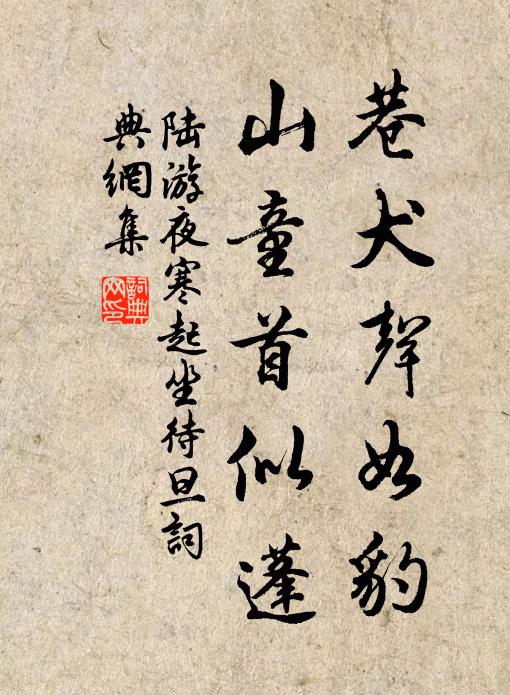 巷犬聲如豹
山童首似蓬
陆游夜寒起坐待旦詞
典網集
詞典
网印